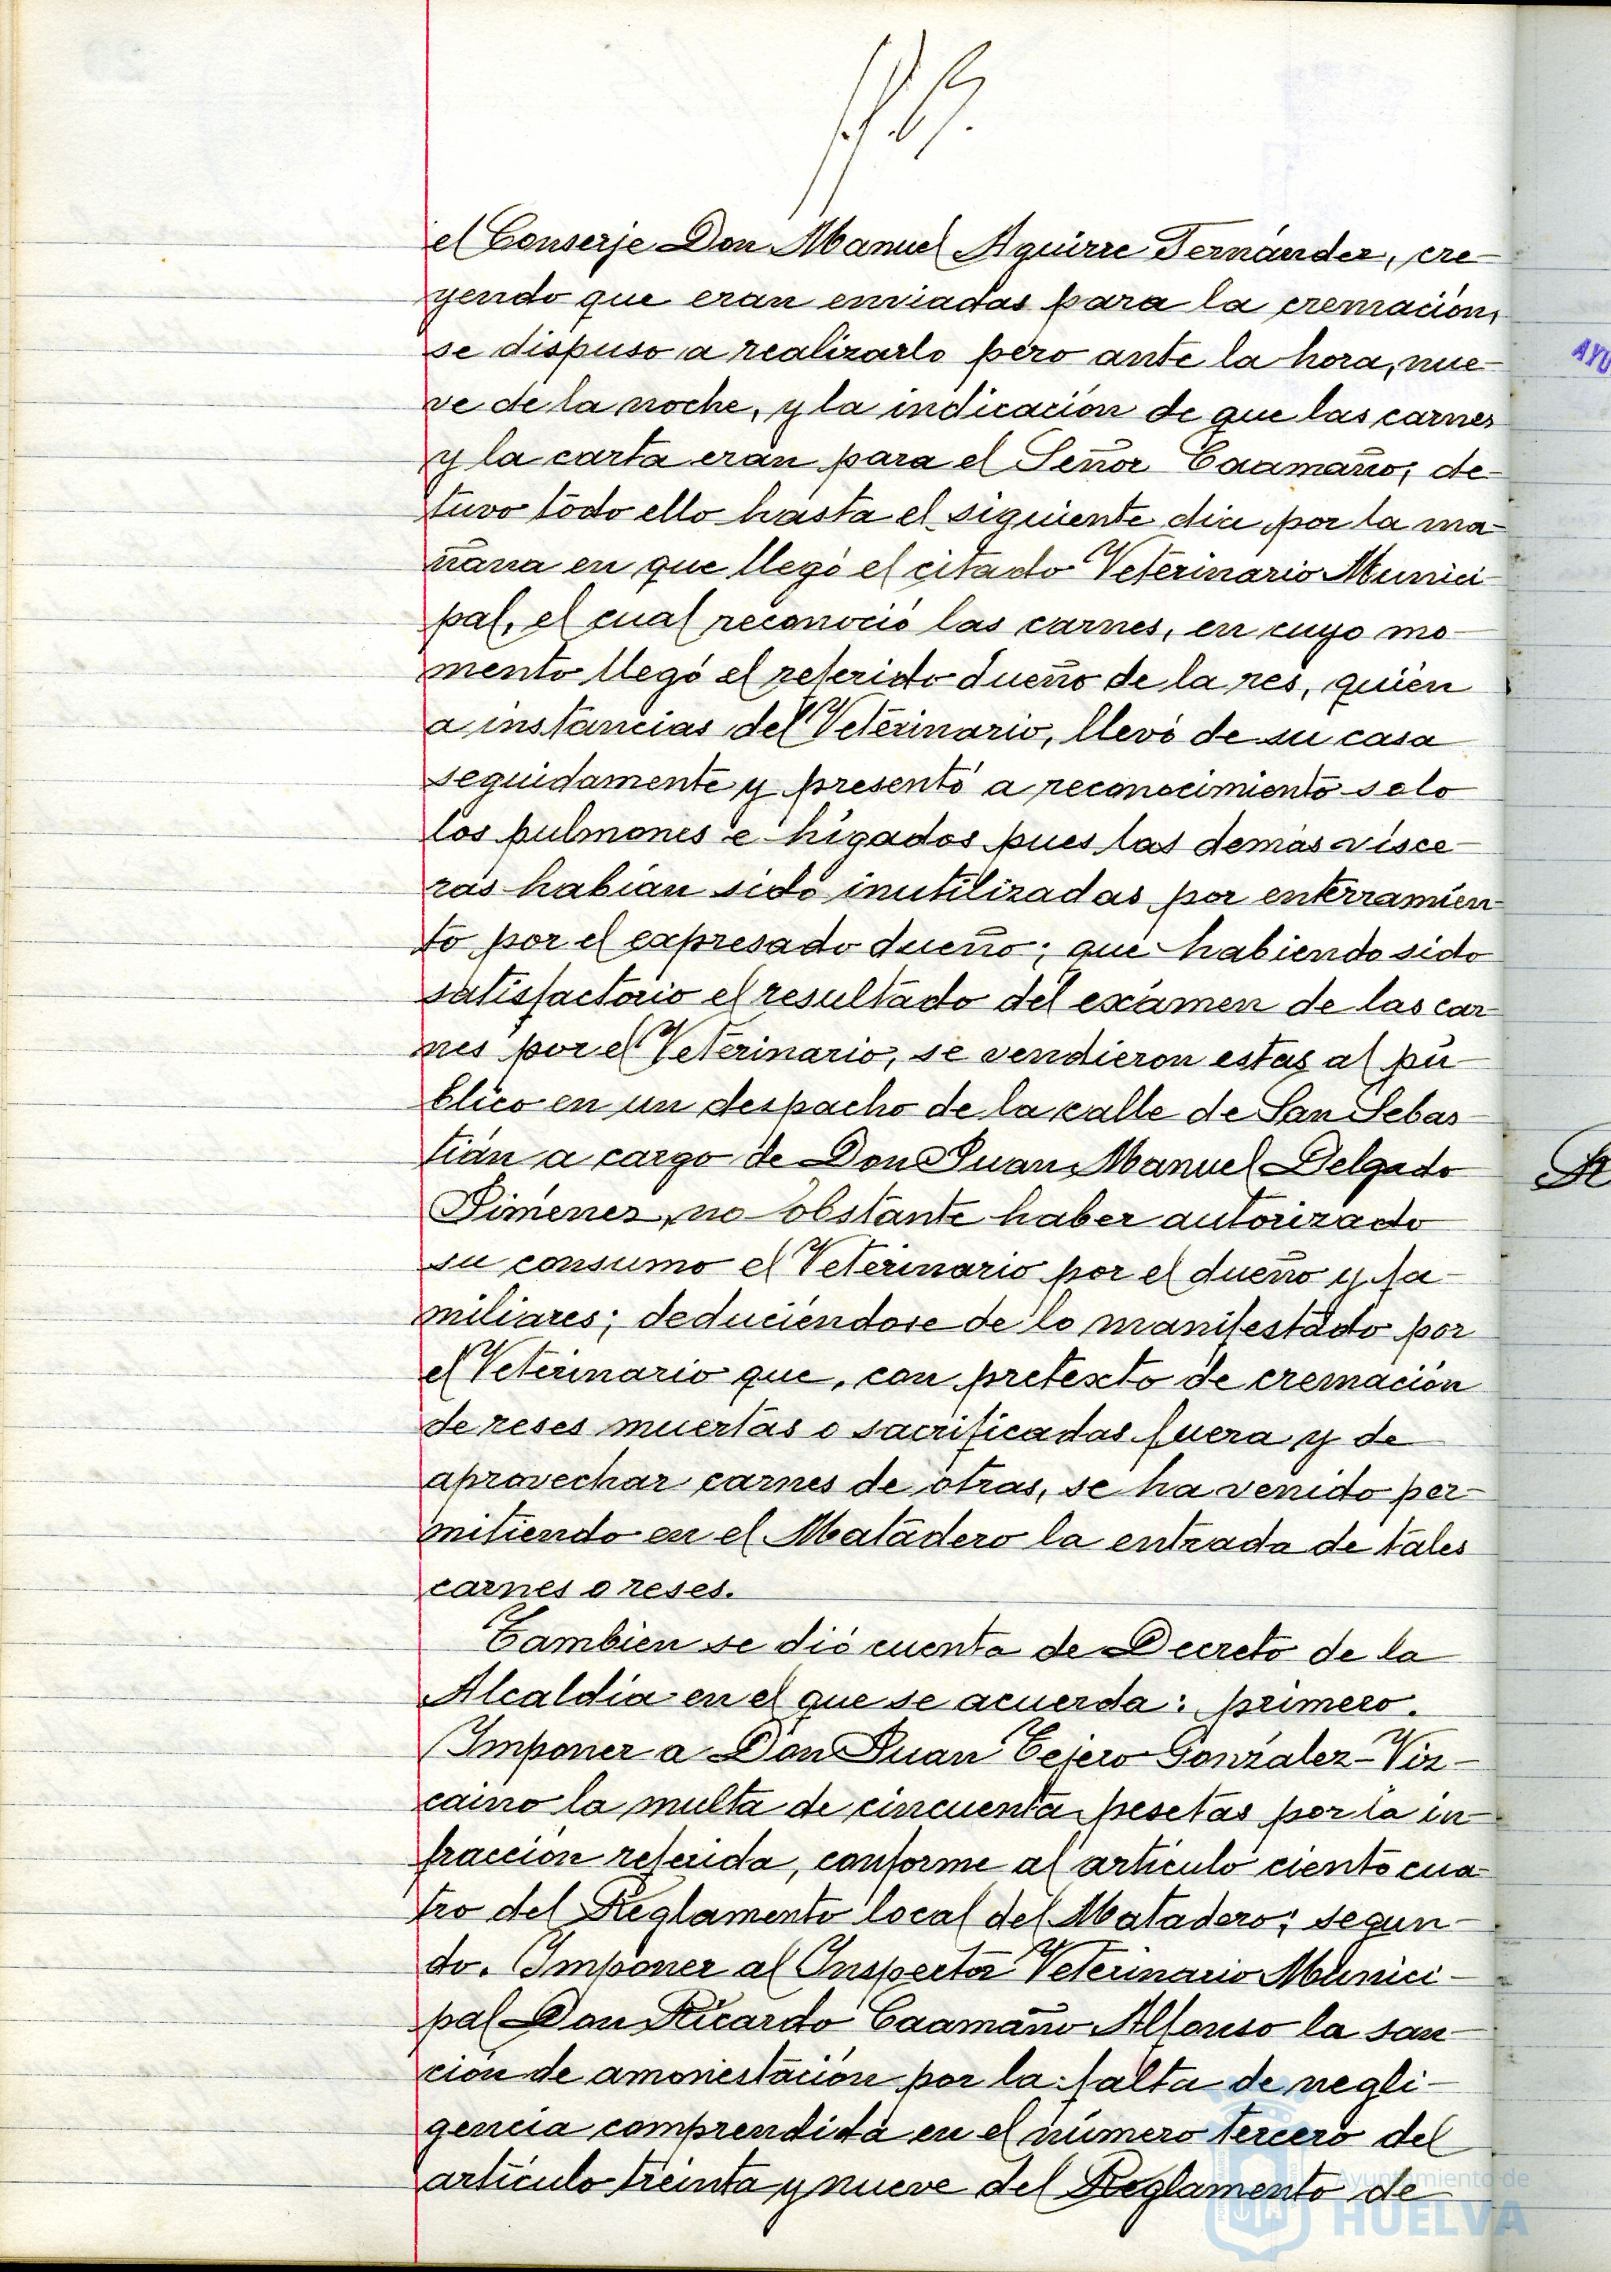 el Conserje Don Manuel Aguirre Fernández, cre-
yendo que eran enviadas para la cremación,
se dispuso a realizarlo pero ante la hora, nue-
ve de la noche, y la indicación de que las carnes
y la carta eran para el Señor Caamaño, de-
tuvo todo ello hasta el siguiente dia por la ma-
ñana en que llegó el citado Veterinario Munici-
pal, el cual reconoció las carnes, en cuyo mo-
mento llegó el referido dueño de la res, quién
a instancias del Veterinario, llevó de su casa
seguidamente y presentó a reconocimiento solo
los pulmones e hígados pues las demás vísce-
ras habían sido inutilizadas por enterramien-
to por el expresado dueño; que habiendo sido
satisfactorio el resultado del exámen de las car-
nes por el Veterinario, se vendieron estas al pú-
blico en un despacho de la calle de San Sebas-
tián a cargo de Don Juan Manuel Delgado
Jiménez, no obstante haber autorizado
su consumo el Veterinario por el dueño y fa-
miliares; deduciéndose de lo manifestado por
el Veterinario que, con pretexto de cremación
de reses muertas o sacrificadas fuera y de
aprovechar carnes de otras, se ha venido per-
mitiendo en el Matadero la entrada de tales
carnes o reses.
Tambien se dió cuenta de Decreto de la
Alcaldía en el que se acuerda: primero.
Imponer a Don Juan Tejero González-Viz-
caino la multa de cincuenta pesetas por la in-
fracción referida, conforme al artículo ciento cua-
tro del Reglamento local del Matadero; segun-
do. Imponer al Inspector Veterinario Munici-
pal Don Ricardo Caamaño Alfonso la san-
ción de amonestación por la falta de negli-
gencia comprendida en el número tercero del
artículo treinta y nueve del Reglamento de
AYU
Ayuntamiento de
HUELVA